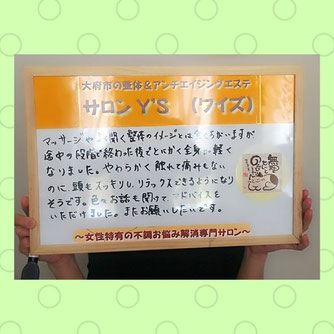 大府市の整体&アンチエイジングエステ
サロン Y'S （ワイズ）
マッサージやよく聞く整体のイメージとは全くちがいますが
途中の段階で終わった後でとにかく全身が軽く
なりました。やわらかく触れて痛みもない
のに、頭もスッキリし、リラックスできるようになり
そうです。色々お話も聞けて、アドバイスを
いただけました。またお願いしたいです。
〜女性特有の不調お悩み解消専門サロン〜